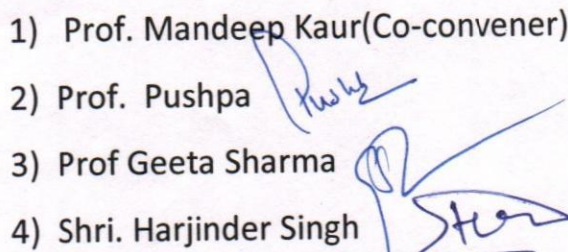 1) Prof. Mandeep Kaur(Co-convener)
2) Prof. Pushpa
3) Prof Geeta Sharma
4) Shri. Harjinder Singh